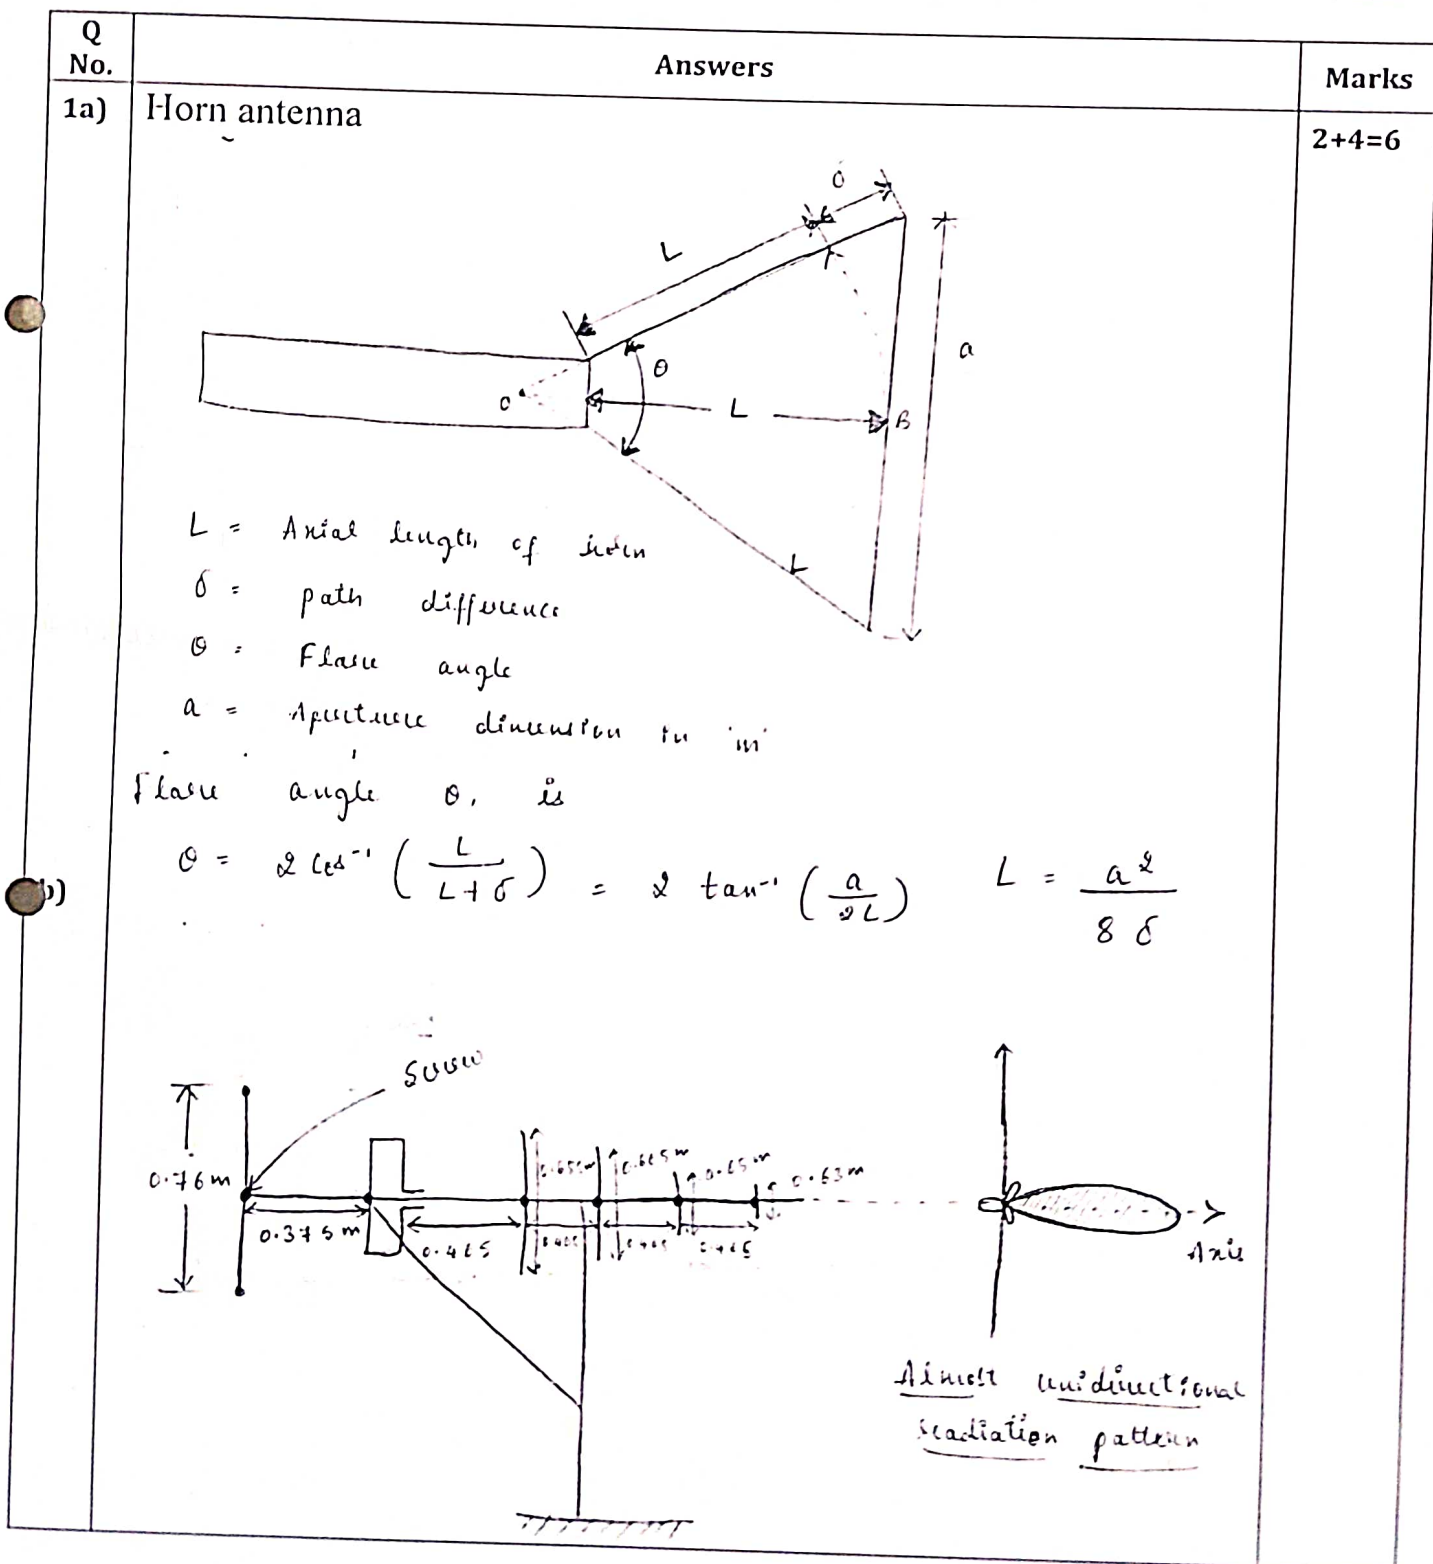 Q No.
Answers
Marks
1a)
Horn antenna
2+4=6
δ
L
a
θ
O
L
B
L
L = Axial length of horn
δ = path difference
θ = Flare angle
a = Aperture dimension in 'm'
Flare angle θ, is
θ = 2 cos⁻¹ ( L / L+δ ) = 2 tan⁻¹ ( a / 2L ) L = a² / 8 δ
b)
Screw
0.76 m
0.375 m
0.465
0.665 m
0.65 m
0.63 m
0.465
Axis
Almost unidirectional
radiation pattern